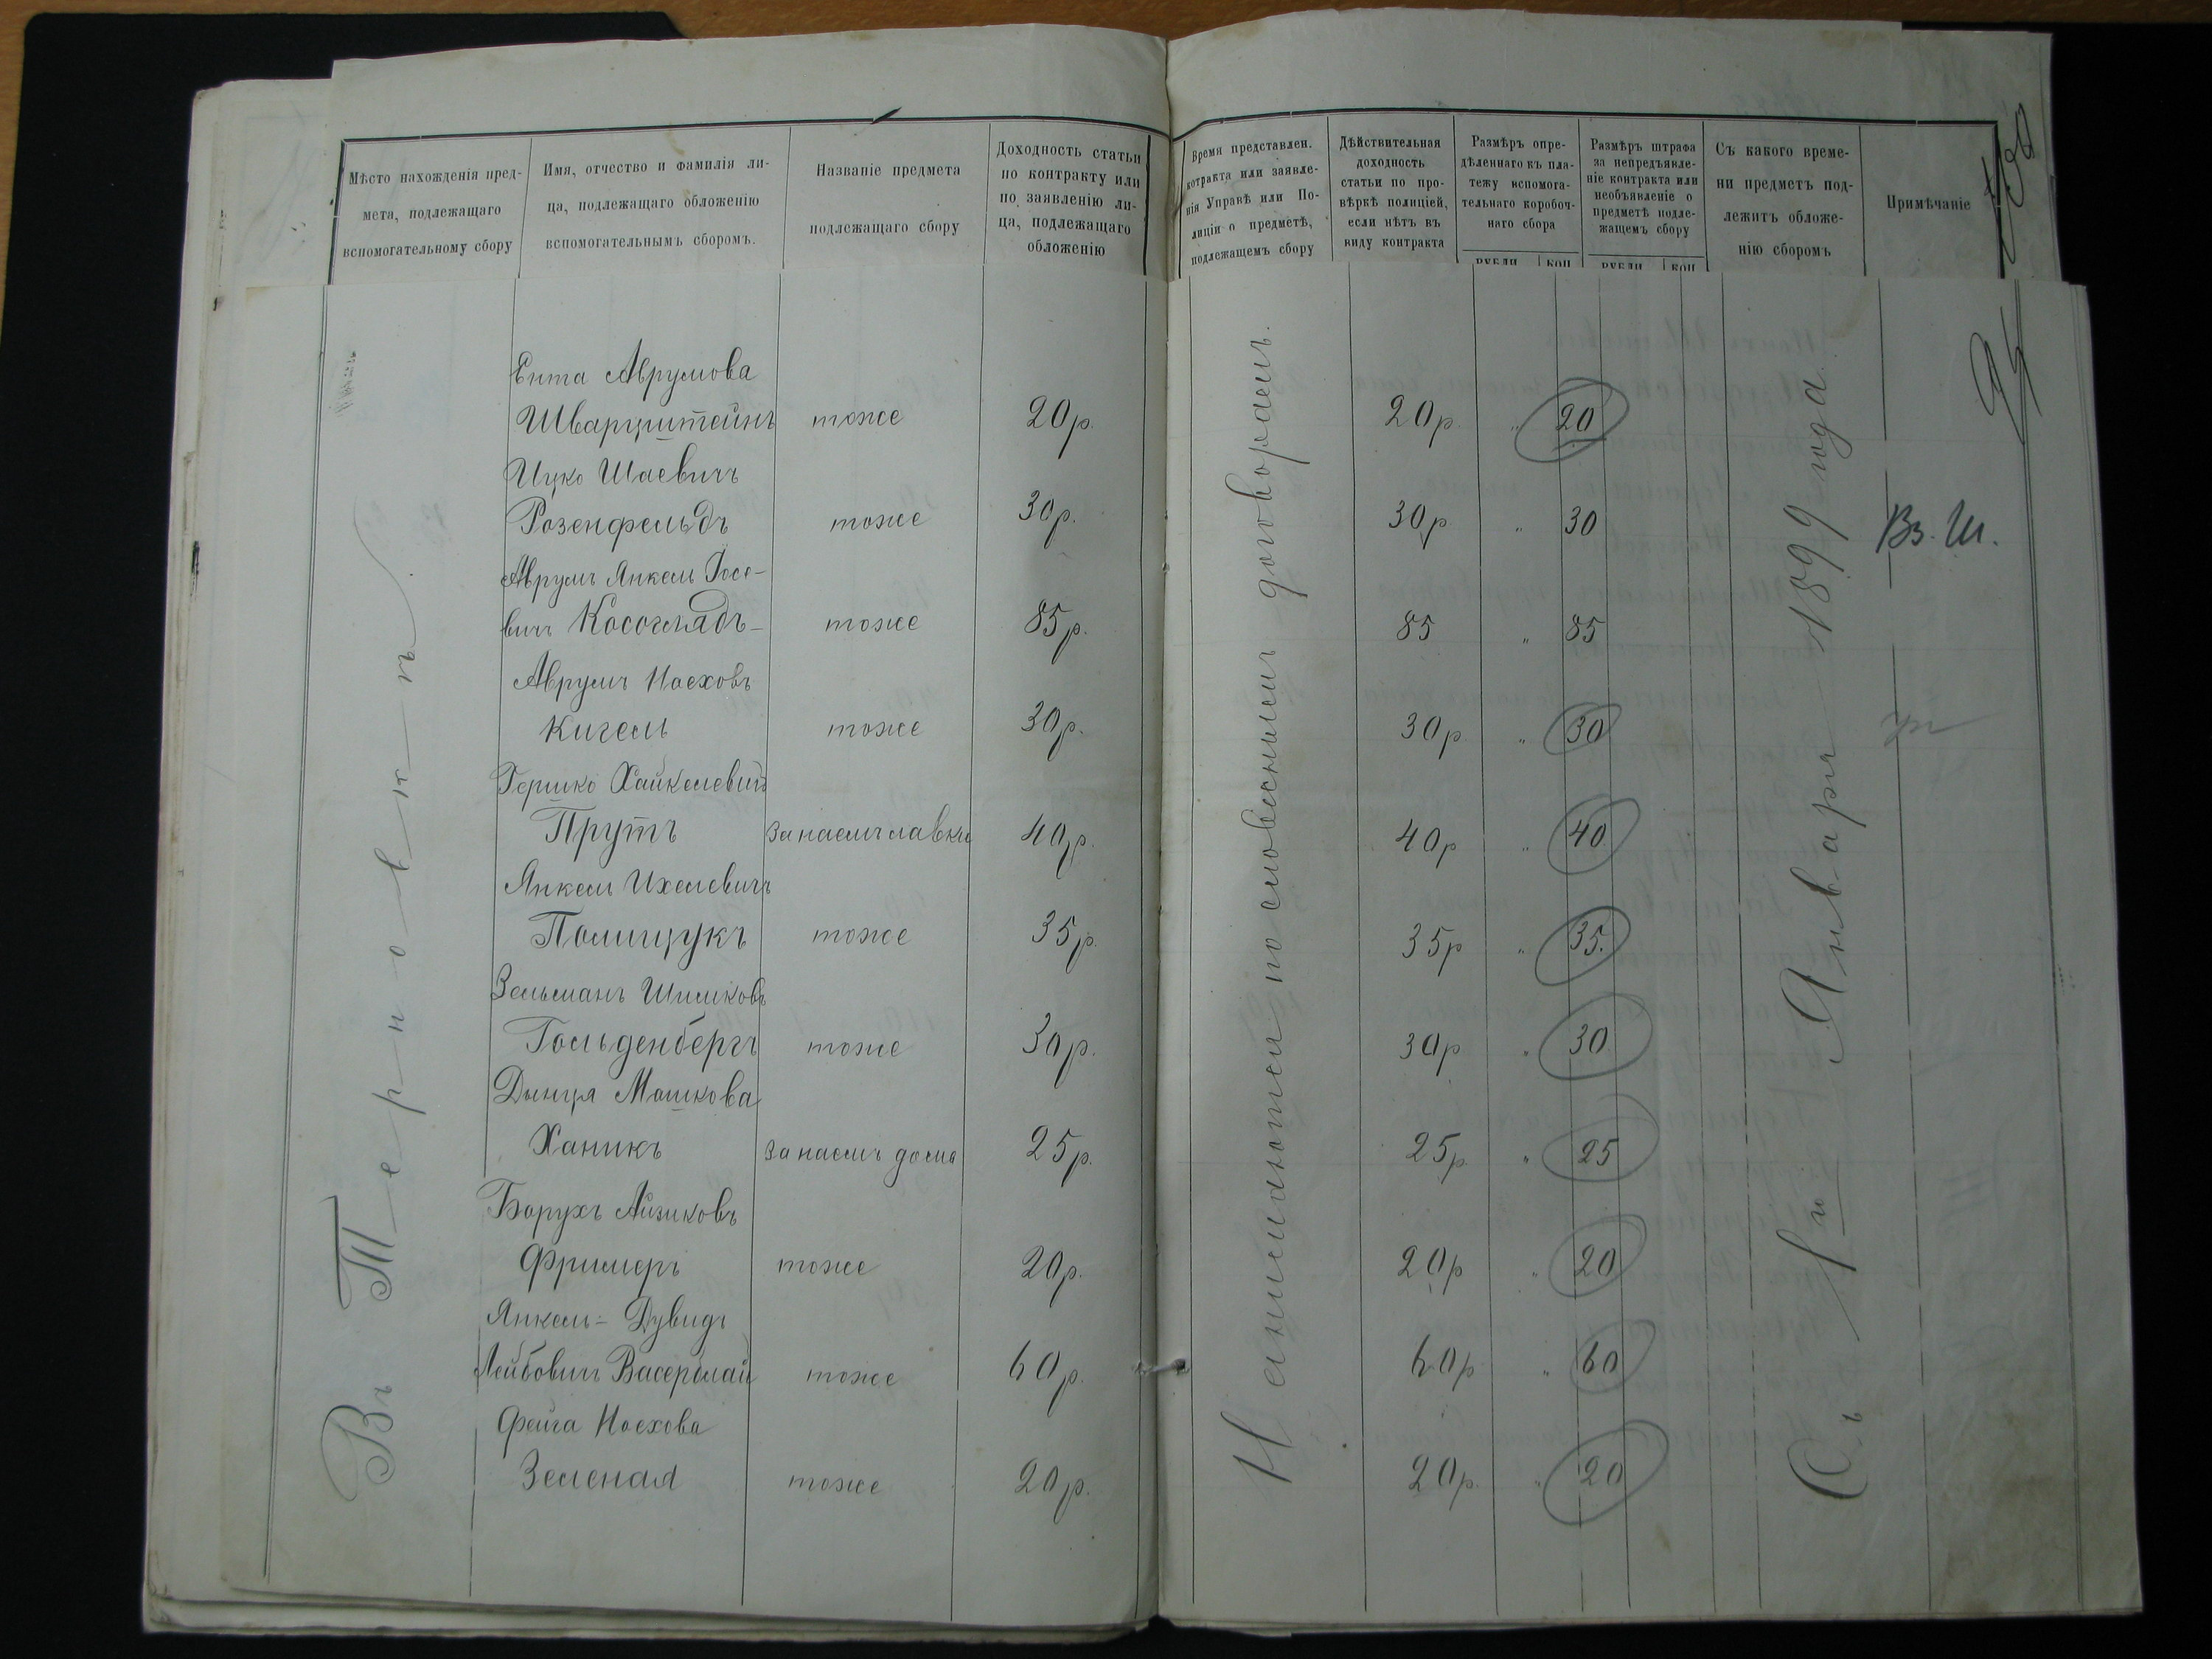 Мѣсто нахожденія пред-
мета, подлежащаго
вспомогательному сбору
Имя, отчество и фамилія ли-
ца, подлежащаго обложенію
вспомогательнымъ сборомъ.
Названіе предмета
подлежащаго сбору
Доходность статьи
по контракту или
по заявленію ли-
ца, подлежащаго
обложенію
Время представлен.
контракта или заявле-
нія Управѣ или По-
лиціи о предметѣ,
подлежащемъ сбору
Дѣйствительная
доходность
статьи по про-
вѣркѣ полиціей,
если нѣтъ въ
виду контракта
Размѣръ опре-
дѣленнаго къ пла-
тежу вспомога-
тельнаго коробоч-
наго сбора
рубли коп
Размѣръ штрафа
за непредъявле-
ніе контракта или
необъявленіе о
предметѣ подле-
жащемъ сбору
рубли коп
Съ какого време-
ни предметъ под-
лежитъ обложе-
нію сборомъ
Примѣчаніе
Въ Терновкѣ
Ента Аврумова
Шварцштейнъ тоже 20р. 20р. " 20
Ицко Шаевичъ
Розенфельдъ тоже 30р. 30р " 30 Вз. Ш.
Аврумъ Янкель Іосе-
вичъ Косоглядъ тоже 85р. 85 " 85
Аврумъ Ноеховъ
Кигель тоже 30р. 30р " 30
Гершко Хайкелевичъ
Прутъ за наемъ лавки 40р. 40р " 40
Янкель Ихелевичъ
Полищукъ тоже 35р. 35р " 35.
Зельманъ Шимковъ
Гольденбергъ тоже 30р. 30р " 30
Дынця Мошкова
Ханикъ за наемъ дома 25р. 25р. " 25
Борухъ Айзиковъ
Фримеръ тоже 20р. 20р " 20
Янкель-Дувидъ
Лейбовичъ Васермай тоже 60р. 60р " 60
Фейга Ноехова
Зеленая тоже 20р. 20р. " 20
Нанимаются по словеснымъ договорамъ.
Съ 1го Января 1899 года